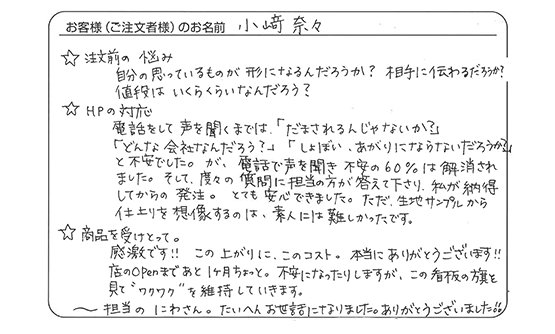 お客様(ご注文者様)のお名前 小﨑 奈々
☆ 注文前の悩み
自分の思っているものが形になるんだろうか? 相手に伝わるだろうか?
値段は いくらくらいなんだろう?
☆ HPの対応
電話をして声を聞くまでは、「だまされるんじゃないか?」
「どんな会社なんだろう?」「しょぼい、あがりにならないだろうか?」
と不安でした。が、電話で声を聞き 不安の60%は解消され
ました。そして、度々の質問に担当の方が答えて下さり、私が納得
してからの発注。とても安心できました。ただ、生地サンプルから
仕上りを想像するのは、素人には難しかったです。
☆ 商品を受けとって。
感激です!! この上がりに、このコスト。本当にありがとうございます!!
店のOpenまであと1ヶ月ちょっと。不安になったりしますが、この看板の旗を
見て“ワクワク”を維持していきます。
〜担当のにわさん。たいへんお世話になりました。ありがとうございました!!